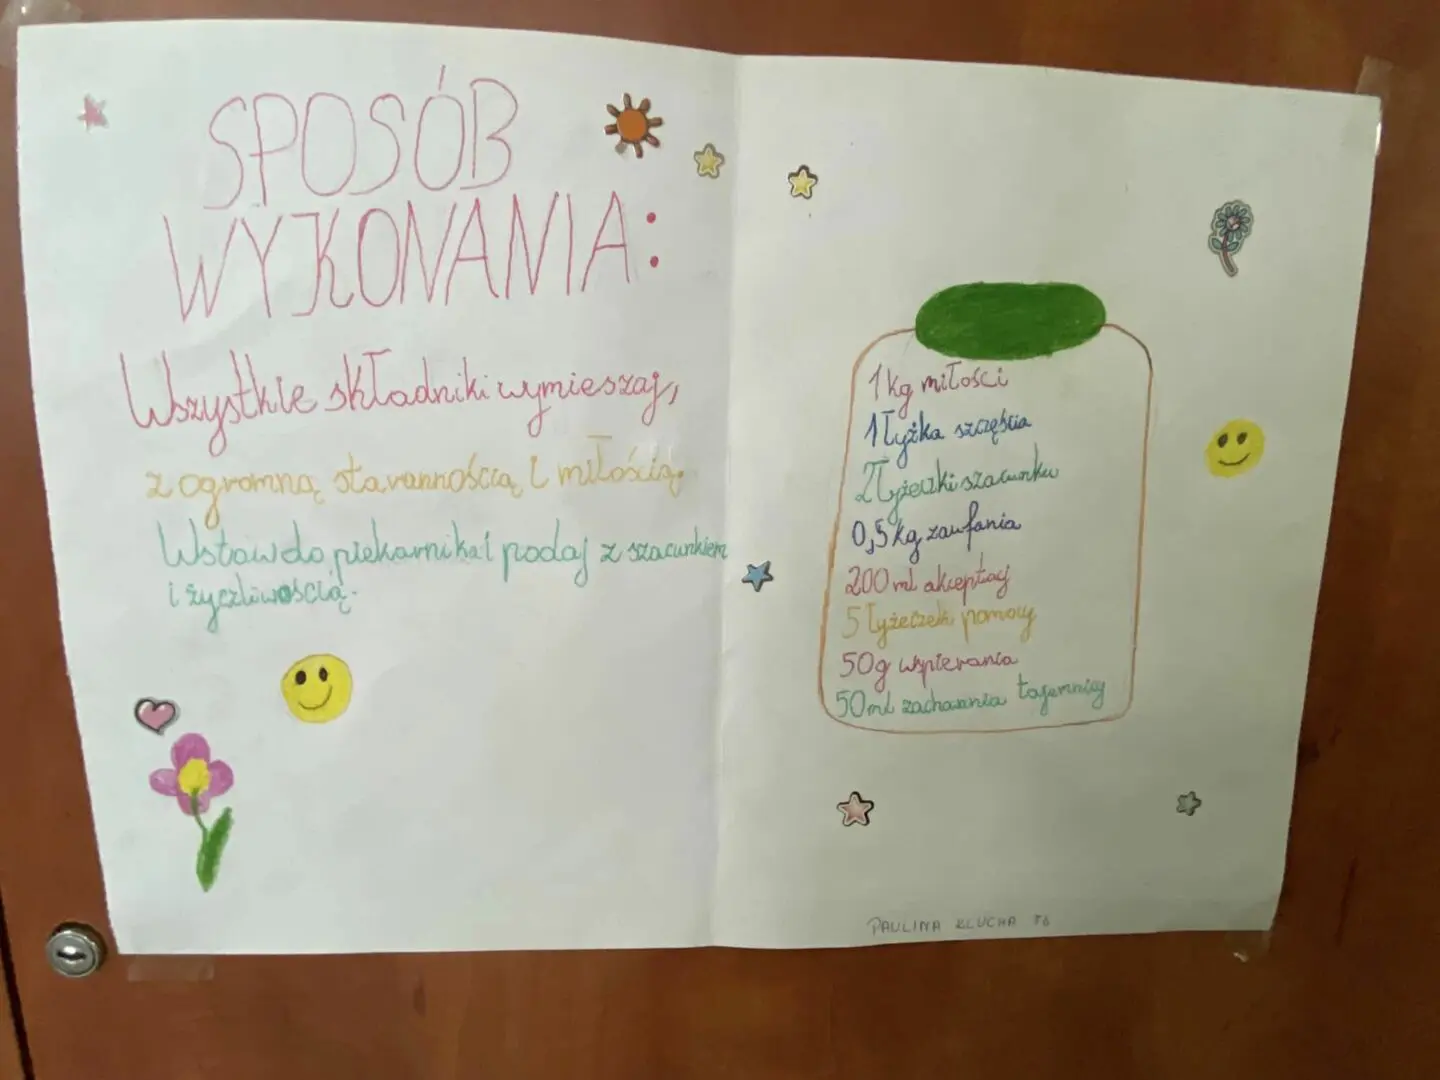 SPOSÓB
WYKONANIA:
Wszystkie składniki wymieszaj,
z ogromną starannością i miłością.
Wstaw do piekarnika i podaj z szacunkiem
i życzliwością.
1 kg miłości
1 łyżka szczęścia
2 łyżeczki szacunku
0,5 kg zaufania
200 ml akceptacj
5 łyżeczek pomocy
50g wspierania
50 ml zachowania tajemnicy
PAULINA